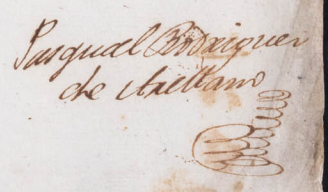 Pasqual Rodriguez
de Arellano